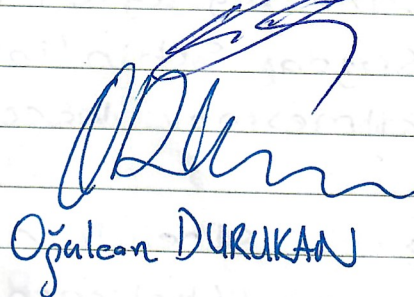 Oğulcan DURUKAN